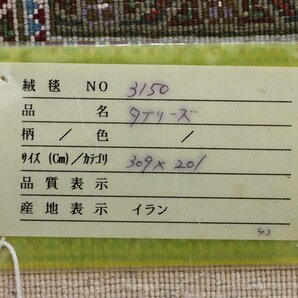 絨毯 NO 3150
品名 タブリーズ
柄／色 ／
サイズ(Cm)／カテゴリ 309×201
品質表示
産地表示 イラン